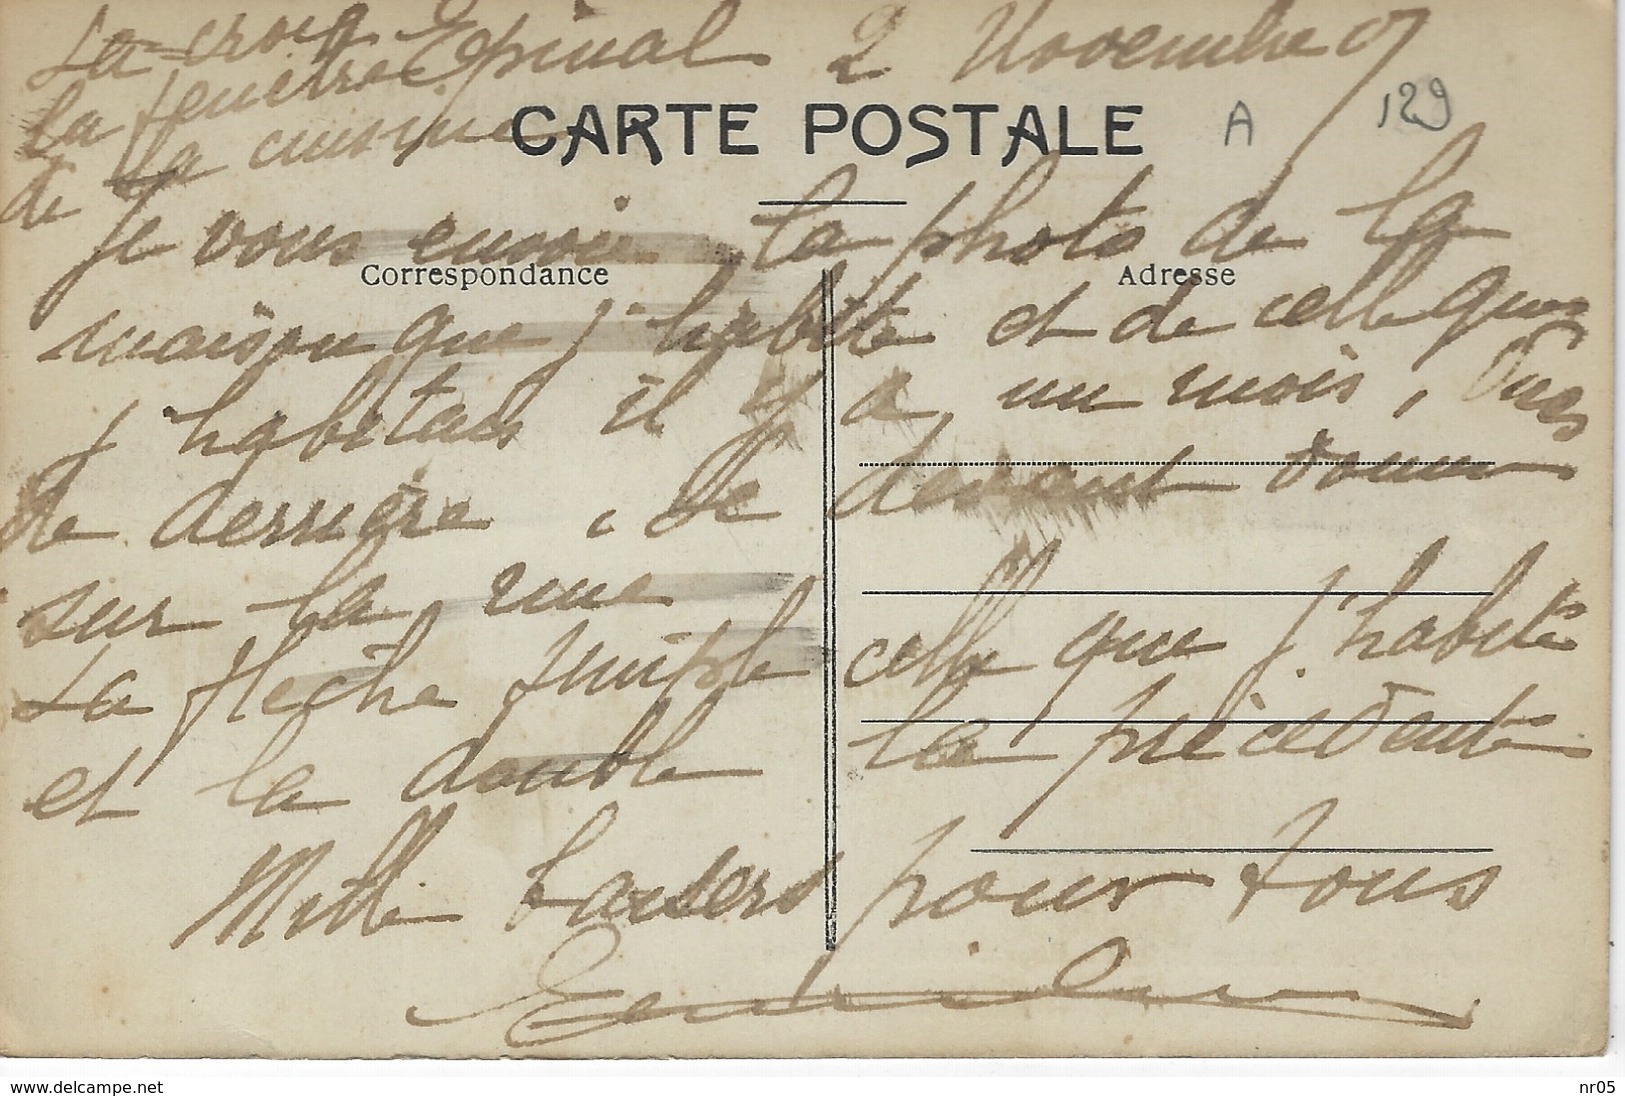 La croix
la fenêtre
de la cuisine
Epinal 2 Novembre 07
CARTE POSTALE
A 129
Je vous envoie la photo de la
Correspondance
Adresse
maison que j'habite et de celle que
j'habitais il y a un mois, Vues
de derrière, le devant donne
sur la rue
La flèche simple celle que j'habite
et la double la précédente
Mille baisers pour tous
www.delcampe.net
nr05